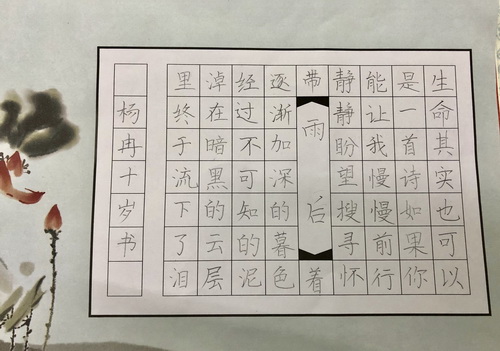 生命其实也可以
是一首诗如果你
能让我慢慢前行
静静盼望搜寻怀
带雨后着
逐渐加深的暮色
经过不可知的泥
淖在暗黑的云层
里终于流下了泪
杨冉十岁书